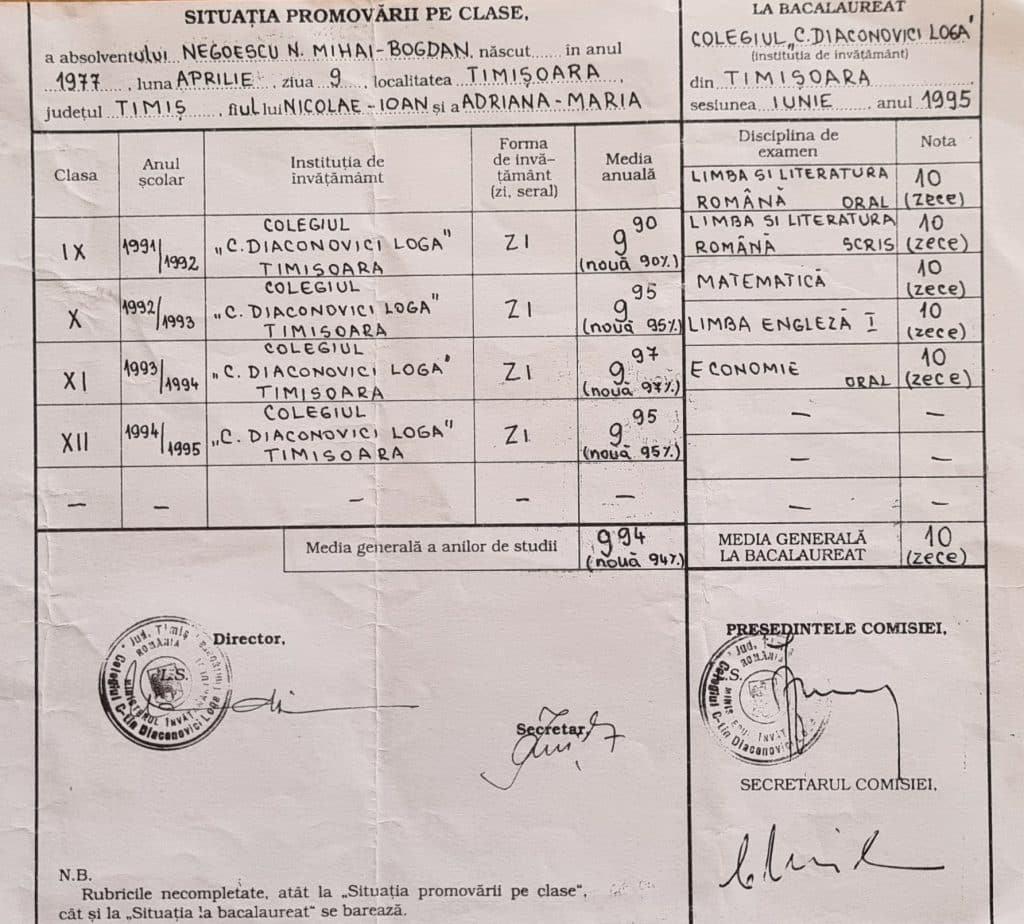 SITUAȚIA PROMOVĂRII PE CLASE,
a absolventului NEGOESCU N. MIHAI-BOGDAN, născut în anul
1977, luna APRILIE, ziua 9, localitatea TIMIȘOARA,
județul TIMIȘ, fiul lui NICOLAE-IOAN și a ADRIANA-MARIA
Clasa
Anul școlar
Instituția de învățămâmt
Forma de învă-
țământ
(zi, seral)
Media anuală
IX
1991/1992
COLEGIUL
„C. DIACONOVICI LOGA"
TIMISOARA
ZI
9 90
(nouă 90%)
X
1992/1993
COLEGIUL
„C. DIACONOVICI LOGA"
TIMISOARA
ZI
9 95
(nouă 95%)
XI
1993/1994
COLEGIUL
„C. DIACONOVICI LOGA"
TIMISOARA
ZI
9 97
(nouă 97%)
XII
1994/1995
COLEGIUL
„C. DIACONOVICI LOGA"
TIMISOARA
ZI
9 95
(nouă 95%)
— — — — —
Media generală a anilor de studii
9 94
(nouă 94%)
Director,
L.S.
Secretar,
N.B.
Rubricile necompletate, atât la „Situația promovării pe clase“,
cât și la „Situația la bacalaureat“ se barează.
LA BACALAUREAT
COLEGIUL „C. DIACONOVICI LOGA"
(instituția de învățământ)
din TIMIȘOARA
sesiunea IUNIE, anul 1995
Disciplina de examen
Nota
LIMBA SI LITERATURA
ROMÂNĂ ORAL
10
(zece)
LIMBA SI LITERATURA
ROMÂNĂ SCRIS
10
(zece)
MATEMATICĂ
10
(zece)
LIMBA ENGLEZĂ I
10
(zece)
ECONOMIE
ORAL
10
(zece)
— —
— —
— —
MEDIA GENERALĂ
LA BACALAUREAT
10
(zece)
PREȘEDINTELE COMISIEI,
SECRETARUL COMISIEI,